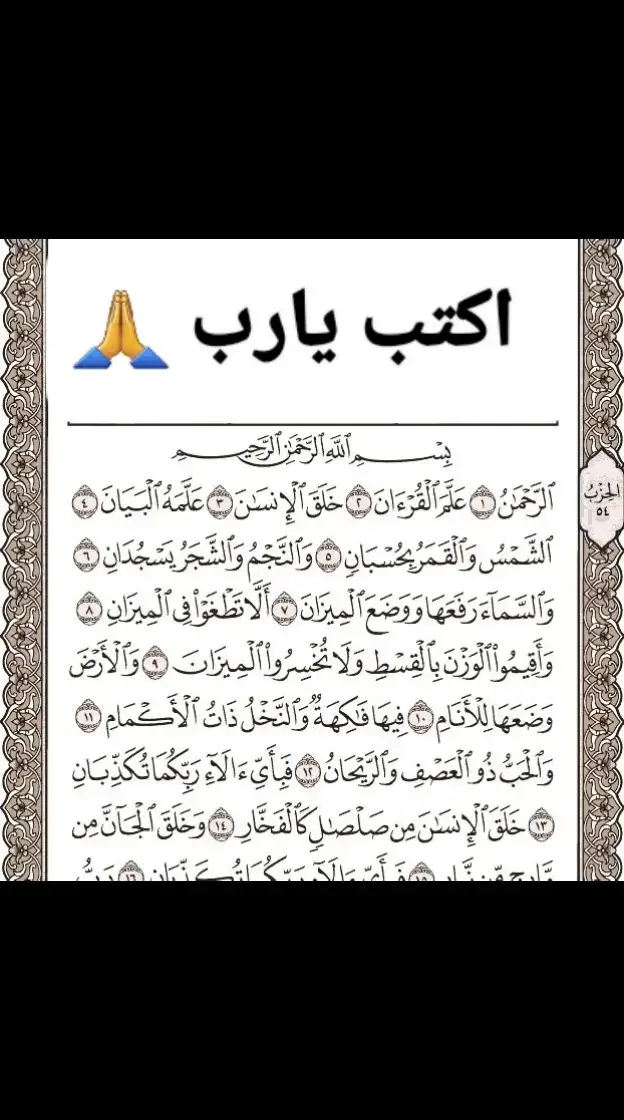 اكتب يارب 🙏
بِسْمِ ٱللَّهِ ٱلرَّحْمَٰنِ ٱلرَّحِيمِ
ٱلرَّحْمَٰنُ ١ عَلَّمَ ٱلْقُرْءَانَ ٢ خَلَقَ ٱلْإِنسَٰنَ ٣ عَلَّمَهُ ٱلْبَيَانَ ٤
ٱلشَّمْسُ وَٱلْقَمَرُ بِحُسْبَانٍ ٥ وَٱلنَّجْمُ وَٱلشَّجَرُ يَسْجُدَانِ ٦
وَٱلسَّمَآءَ رَفَعَهَا وَوَضَعَ ٱلْمِيزَانَ ٧ أَلَّا تَطْغَوْا۟ فِى ٱلْمِيزَانِ ٨
وَأَقِيمُوا۟ ٱلْوَزْنَ بِٱلْقِسْطِ وَلَا تُخْسِرُوا۟ ٱلْمِيزَانَ ٩ وَٱلْأَرْضَ
وَضَعَهَا لِلْأَنَامِ ١٠ فِيهَا فَٰكِهَةٌ وَٱلنَّخْلُ ذَاتُ ٱلْأَكْمَامِ ١١
وَٱلْحَبُّ ذُو ٱلْعَصْفِ وَٱلرَّيْحَانُ ١٢ فَبِأَىِّ ءَالَآءِ رَبِّكُمَا تُكَذِّبَانِ
١٣ خَلَقَ ٱلْإِنسَٰنَ مِن صَلْصَٰلٍ كَٱلْفَخَّارِ ١٤ وَخَلَقَ ٱلْجَآنَّ مِن
مَّارِجٍ مِّن نَّارٍ ١٥ فَبِأَىِّ ءَالَآءِ رَبِّكُمَا تُكَذِّبَانِ ١٦ رَبُّ
الحِزْبُ
٥٤